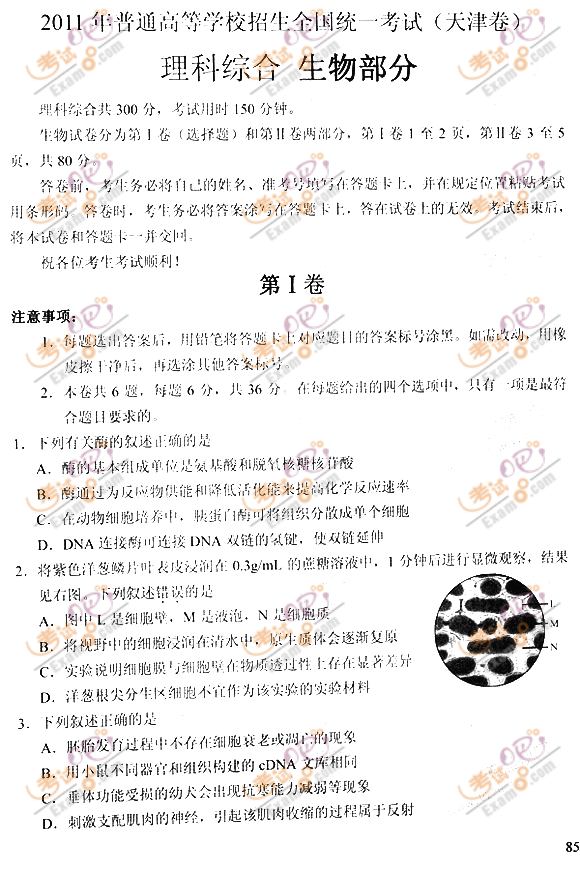 2011 年普通高等学校招生全国统一考试（天津卷）
理科综合 生物部分
理科综合共 300 分，考试用时 150 分钟。
生物试卷分为第 I 卷（选择题）和第 II 卷两部分，第 I 卷 1 至 2 页，第 II 卷 3 至 5
页，共 80 分。
答卷前，考生务必将自己的姓名、准考号填写在答题卡上，并在规定位置粘贴考试
用条形码。答卷时，考生务必将答案涂写在答题卡上，答在试卷上的无效。考试结束后，
将本试卷和答题卡一并交回。
祝各位考生考试顺利！
第 I 卷
注意事项：
1．每题选出答案后，用铅笔将答题卡上对应题目的答案标号涂黑。如需改动，用橡
皮擦干净后，再选涂其他答案标号。
2．本卷共 6 题，每题 6 分，共 36 分。在每题给出的四个选项中，只有一项是最符
合题目要求的。
1．下列有关酶的叙述正确的是
A．酶的基本组成单位是氨基酸和脱氧核糖核苷酸
B．酶通过为反应物供能和降低活化能来提高化学反应速率
C．在动物细胞培养中，胰蛋白酶可将组织分散成单个细胞
D．DNA 连接酶可连接 DNA 双链的氢键，使双链延伸
2．将紫色洋葱鳞片叶表皮浸润在 0.3g/mL 的蔗糖溶液中，1 分钟后进行显微观察，结果
见右图。下列叙述错误的是
A．图中 L 是细胞壁，M 是液泡，N 是细胞质
B．将视野中的细胞浸润在清水中，原生质体会逐渐复原
C．实验说明细胞膜与细胞壁在物质透过性上存在显著差异
D．洋葱根尖分生区细胞不宜作为该实验的实验材料
L
M
N
3．下列叙述正确的是
A．胚胎发育过程中不存在细胞衰老或凋亡的现象
B．用小鼠不同器官和组织构建的 cDNA 文库相同
C．垂体功能受损的幼犬会出现抗寒能力减弱等现象
D．刺激支配肌肉的神经，引起该肌肉收缩的过程属于反射
85